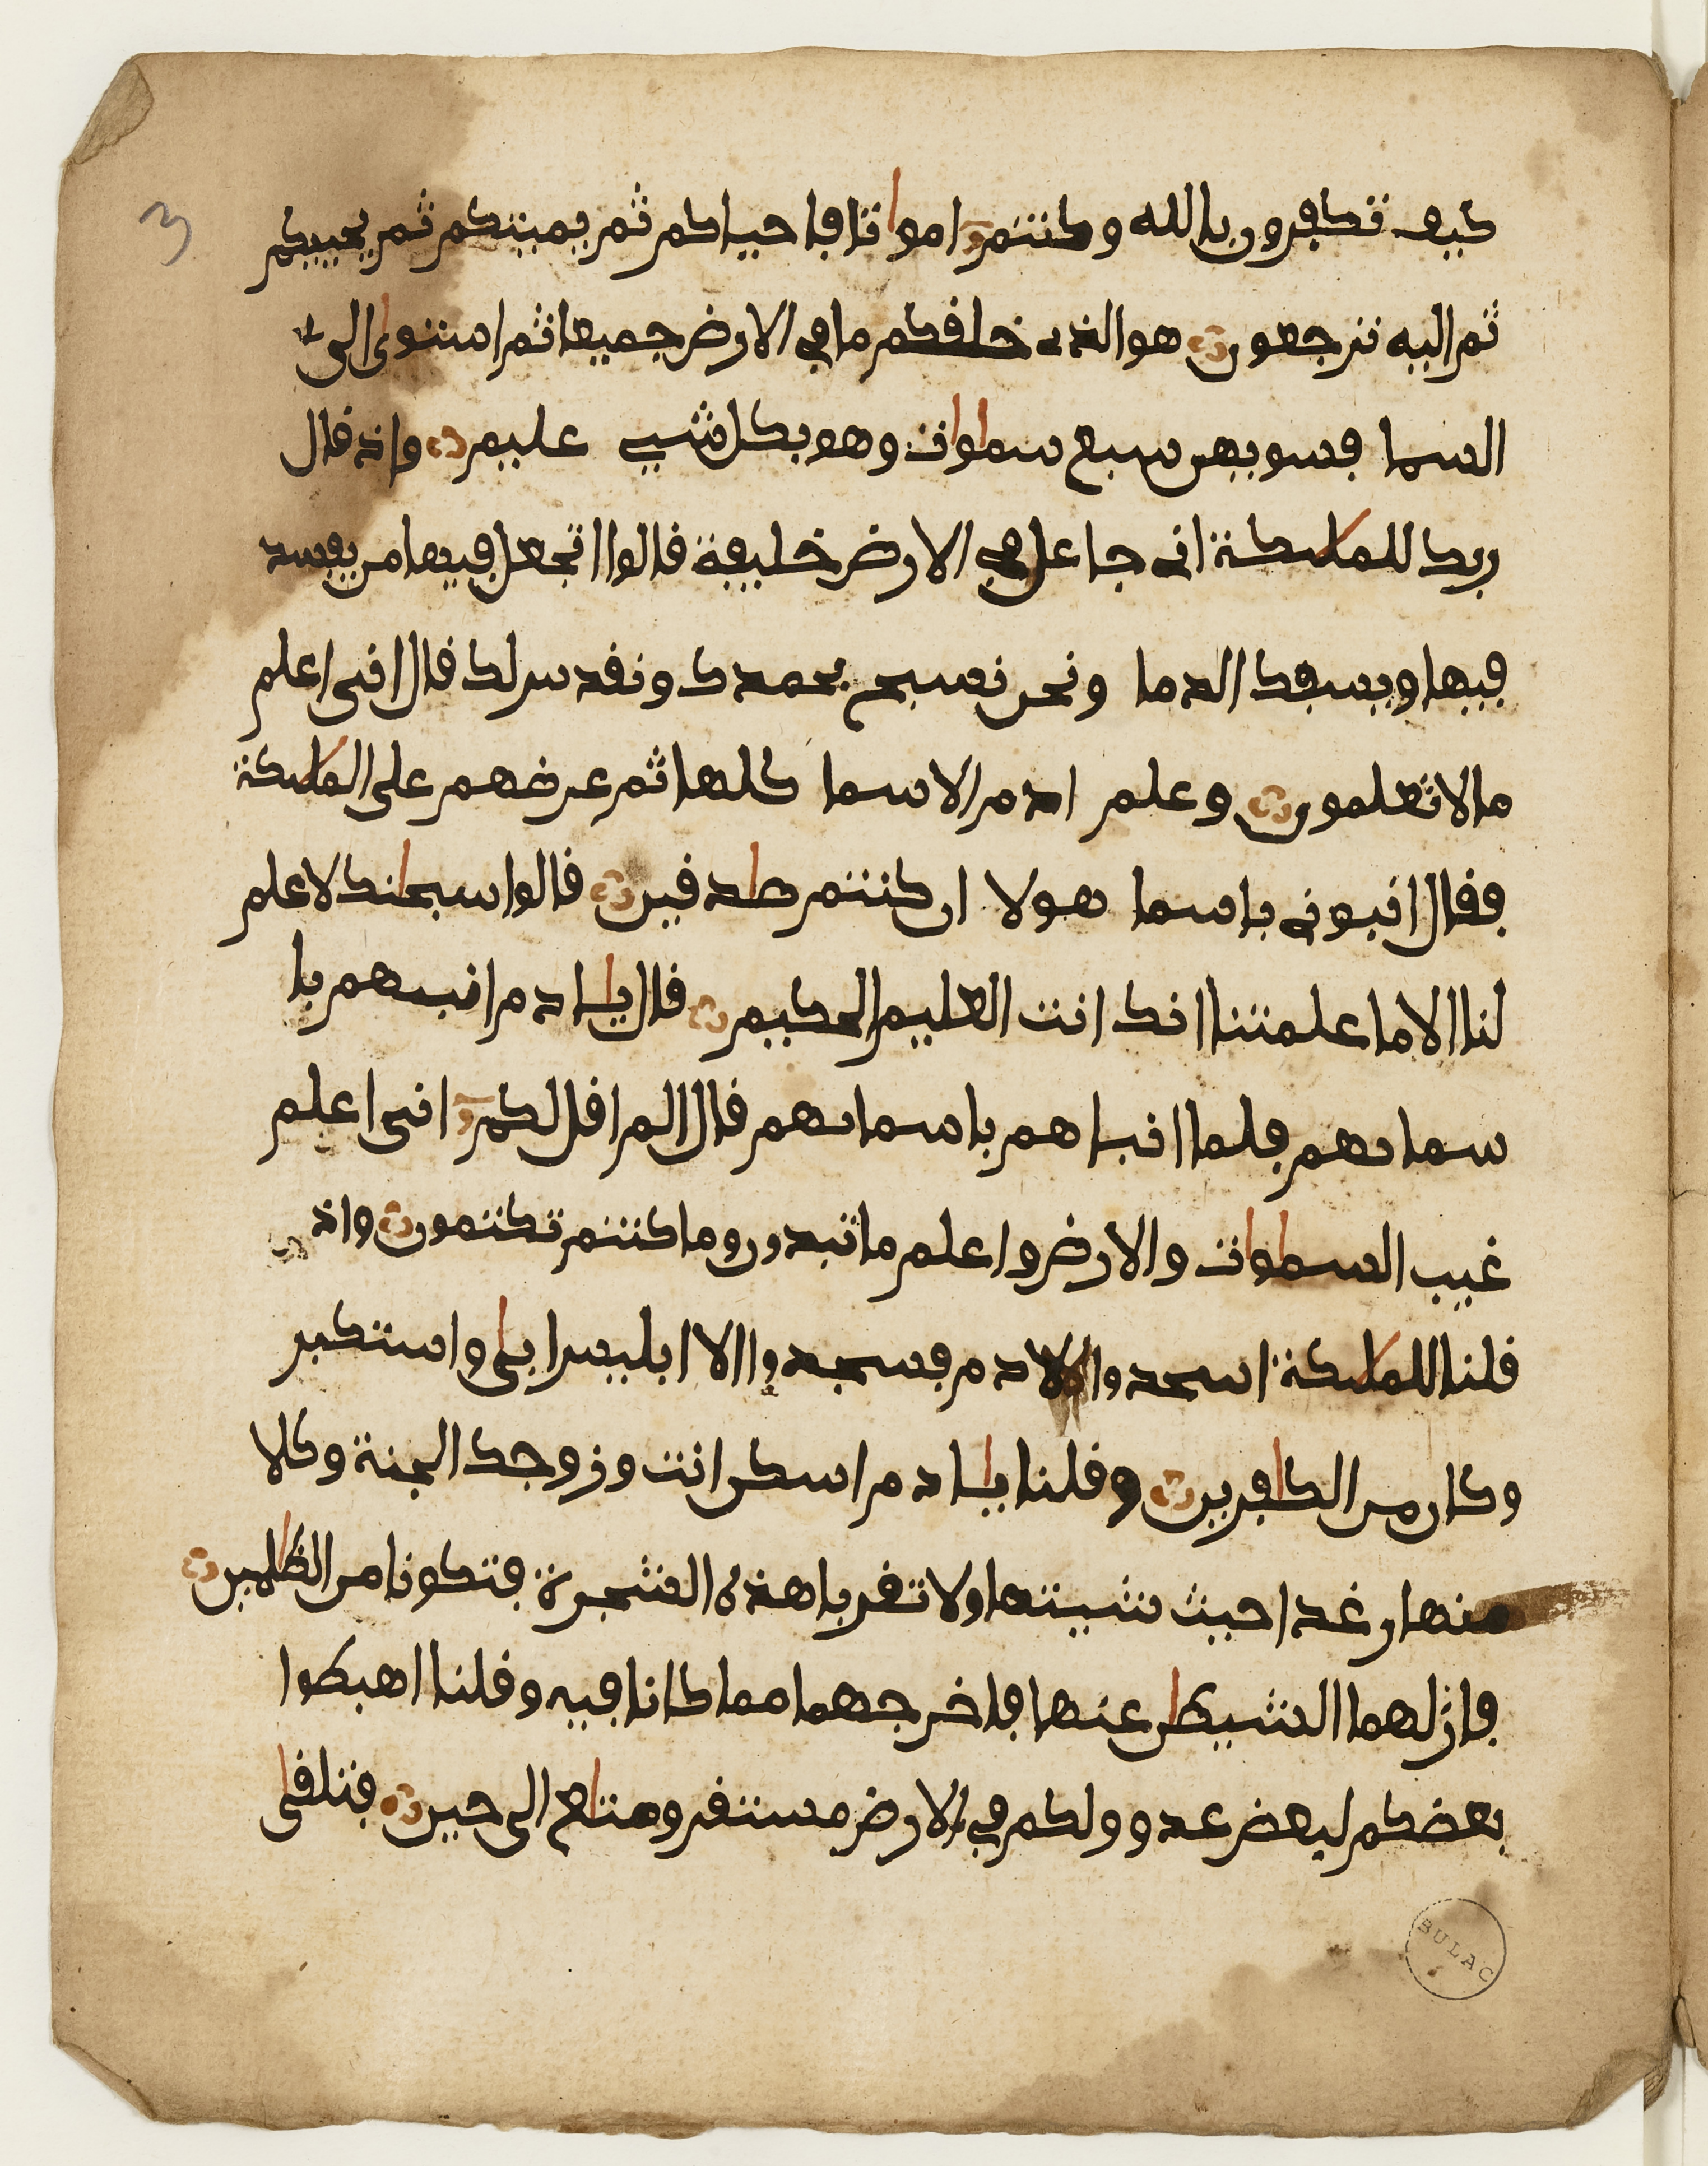 3
كيف تكفرون بالله وكنتم امواتا فاحياكم ثم يميتكم ثم يحييكم
ثم اليه ترجعون هو الذى خلفكم ما في الارض جميعا ثم استوى الى
السما فسويهن سبع سموات وهو بكل شي عليم واذ قال
ربك للمليكة انى جاعل في الارض خليفة قالوا اتجعل فيها من يفسد
فيها ويسفك الدما ونحن نسبح بحمدك ونقدس لك قال انى اعلم
ما لا تعلمون وعلم ادم الاسما كلها ثم عرضهم على المليكة
فقال انبونى باسما هولا ان كنتم صدقين قالوا سبحنك لا علم
لنا الا ما علمتنا انك انت العليم الحكيم قال يادم انبيهم با
سمايهم فلما انباهم باسمايهم قال الم اقل لكم انى اعلم
غيب السموات والارض واعلم ما تبدون وما كنتم تكتمون واذ
قلنا للمليكة اسجدوا لادم فسجدوا الا ابليس ابى واستكبر
وكان من الكافرين وقلنا يادم اسكن انت وزوجك الجنة وكلا
منها رغدا حيث شيتما ولا تقربا هذه الشجرة فتكونا من الظلمين
فازلهما الشيطن عنها فاخرجهما مما كانا فيه وقلنا اهبطوا
بعضكم لبعض عدو ولكم في الارض مستقر ومتاع الى حين فتلقى
BULAC